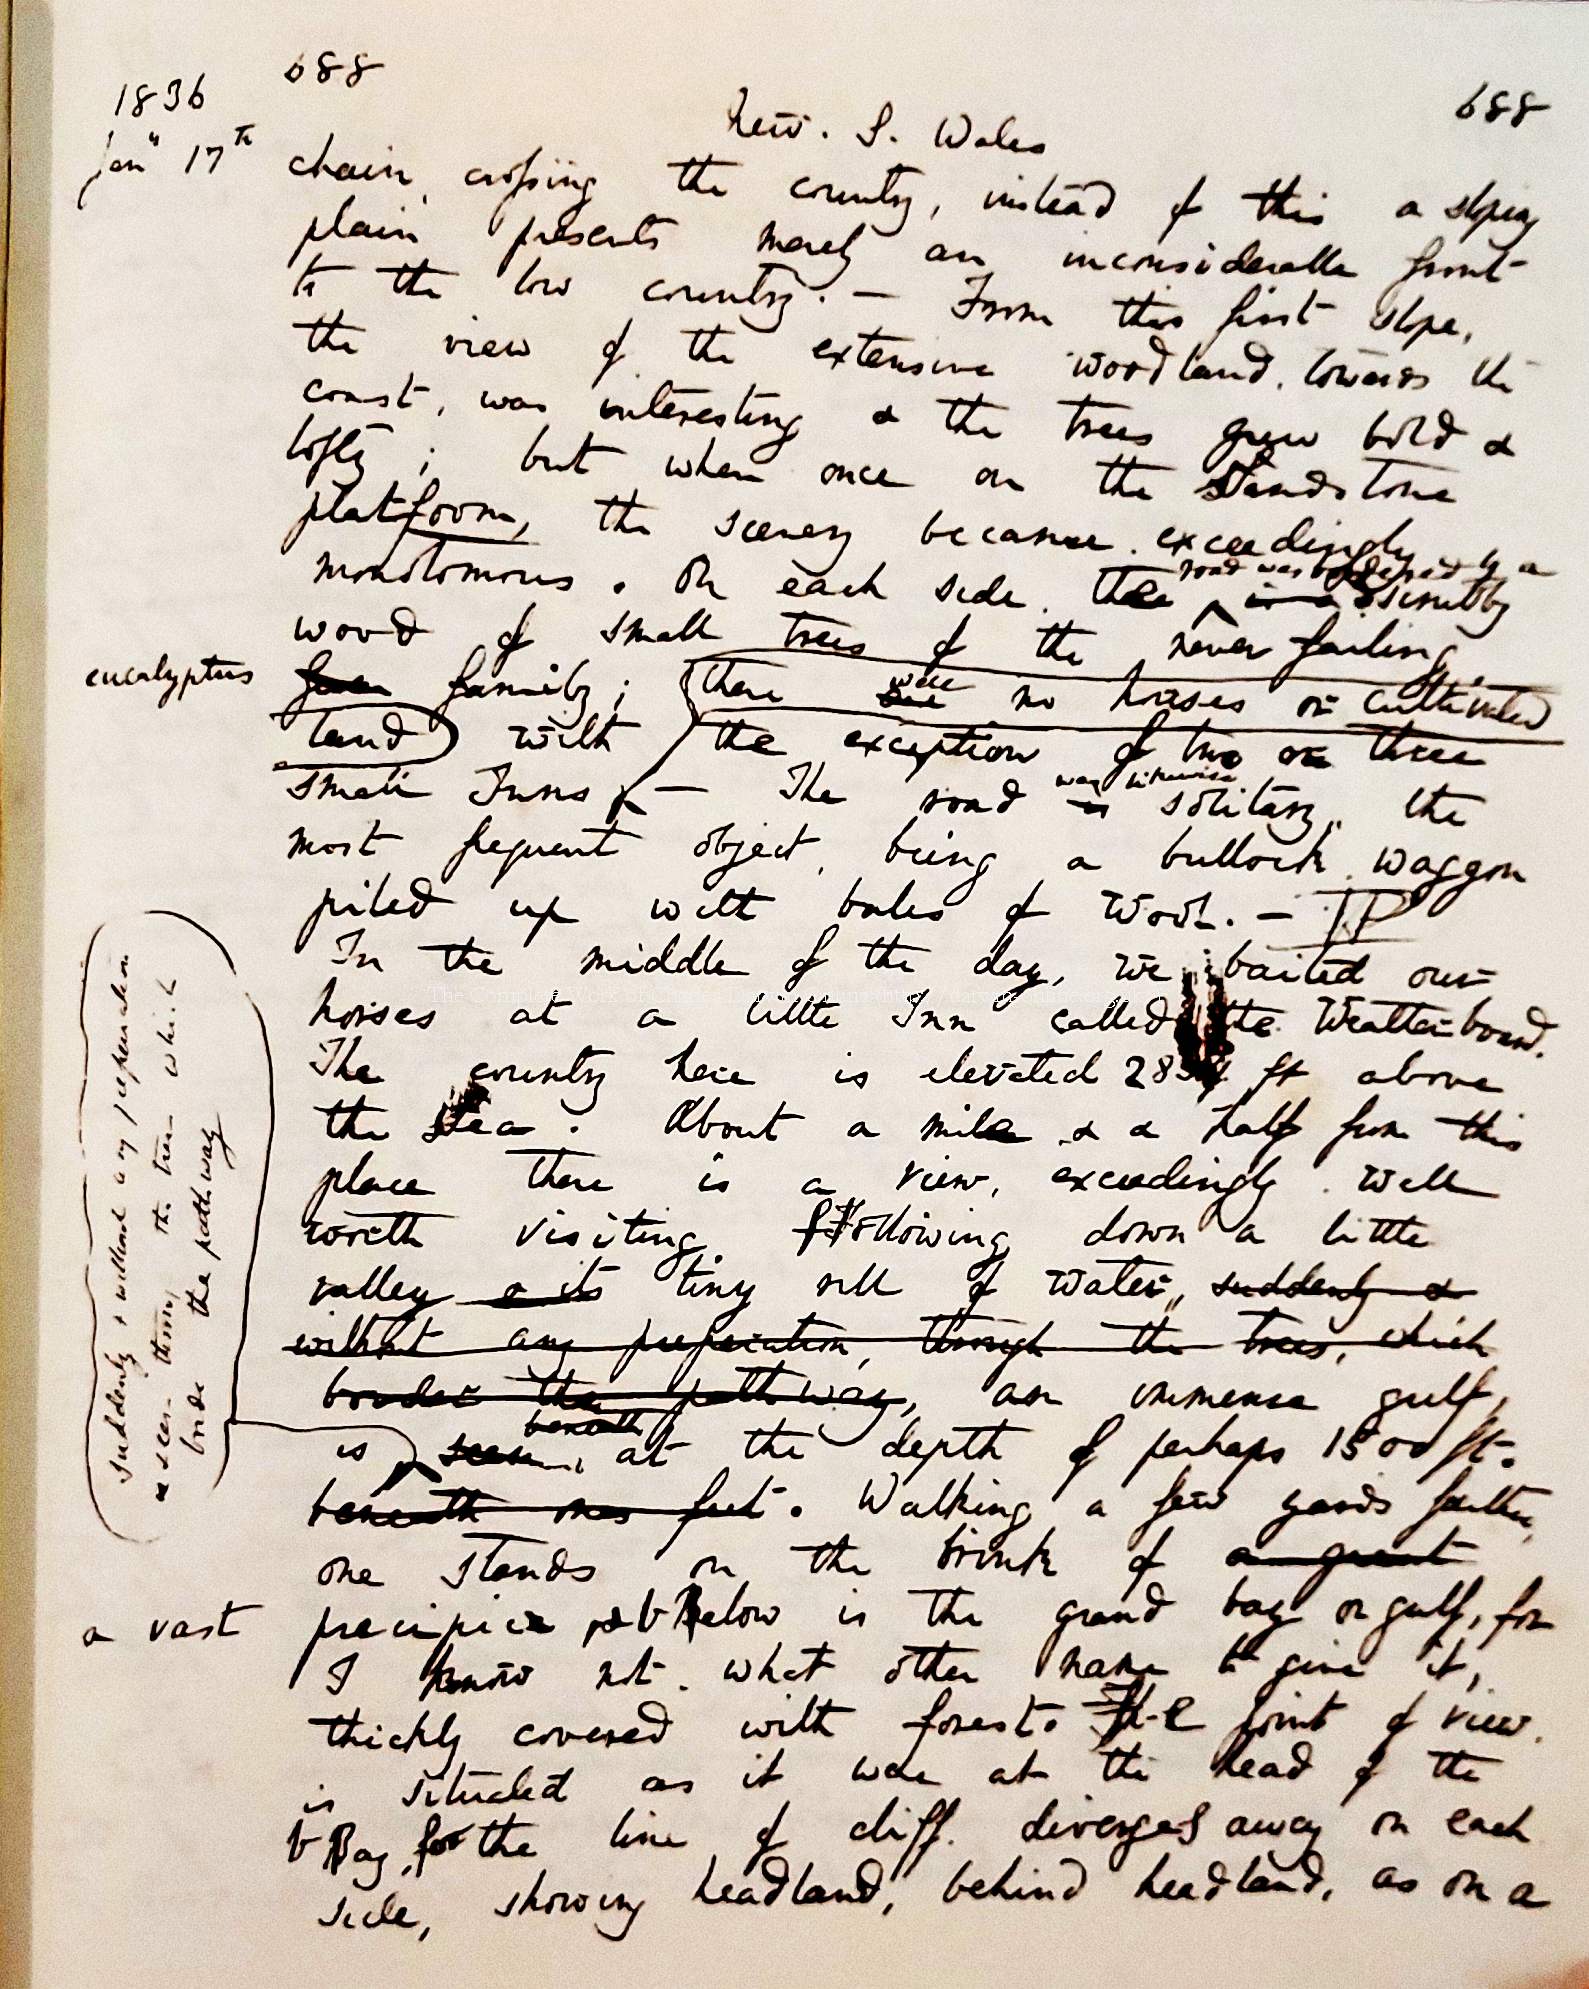 688
688
1836
New. S. Wales
Jan" 17th
chain, crossing the country, instead of this a sloping
plain presents merely an inconsiderable front
to the low country. — From this first slope,
the view of the extensive woodland, towards the
coast, was interesting & the trees grew bold &
lofty; but when once on the Sandstone
platform, the scenery became exceedingly
monotonous. On each side, the road was bordered by a scrubby
wood of small trees of the never failing
eucalyptus
family; there were no houses or cultivated
land with the exception of two or three
small Inns — The road was likewise solitary, the
most frequent object, being a bullock waggon
piled up with bales of Wool. —
In the middle of the day, we baited our
horses at a little Inn called the Weatherboard.
The country here is elevated ft above
the Sea. About a mile & a half from this
place there is a view, exceedingly well
worth visiting, following down a little
valley & its tiny rill of water, suddenly &
without any preparation, through the trees, which
border the pathway, an immense gulf,
is seen, beneath at the depth of perhaps 1500 ft.
beneath ones feet. Walking a few yards farther,
one stands on the brink of a great
a vast
precipice & below is the grand bay or gulf, for
I know not what other name to give it,
thickly covered with forest. The point of view
is situated as it were at the head of the
Bay, for the line of cliff diverges away on each
side, showing headland, behind headland, as on a
suddenly & without any preparation
is seen through the trees which
border the pathway